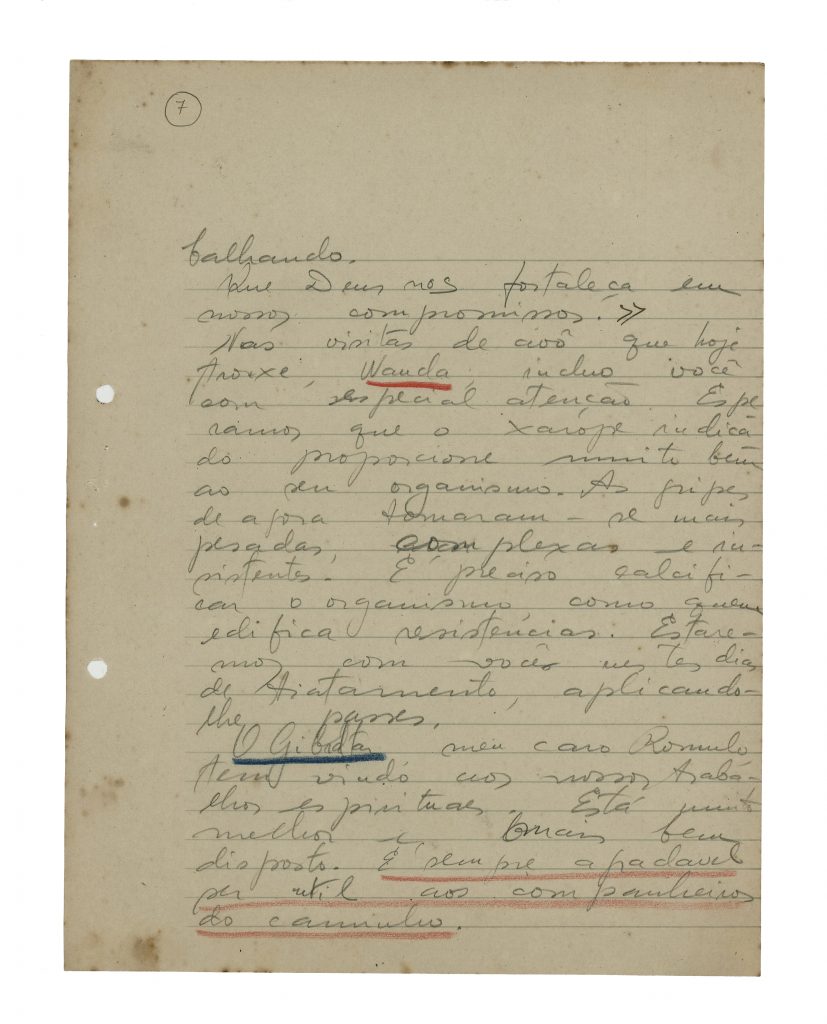 7
balhando.
Que Deus nos fortaleça em
nossos compromissos.»
Nas visitas de avô que hoje
trouxe, Wanda, incluo você
com especial atenção. Espe
ramos que o xarópe indicá
do proporcione muito bem
ao seu organismo. As gripes
de agora tornaram-se mais
pesadas, complexas e in-
sistentes. É preciso calcifi-
car o organismo, como quem
edifica resistencias. Estare-
mos com você nestes dias
de tratamento, aplicando-
lhe passes.
O Gibraltar, meu caro Romulo
tem vindo aos nossos traba-
lhos espirituaes. Está muito
melhor e mais bem
disposto. É sempre agradavel
ser util aos companheiros
do caminho.